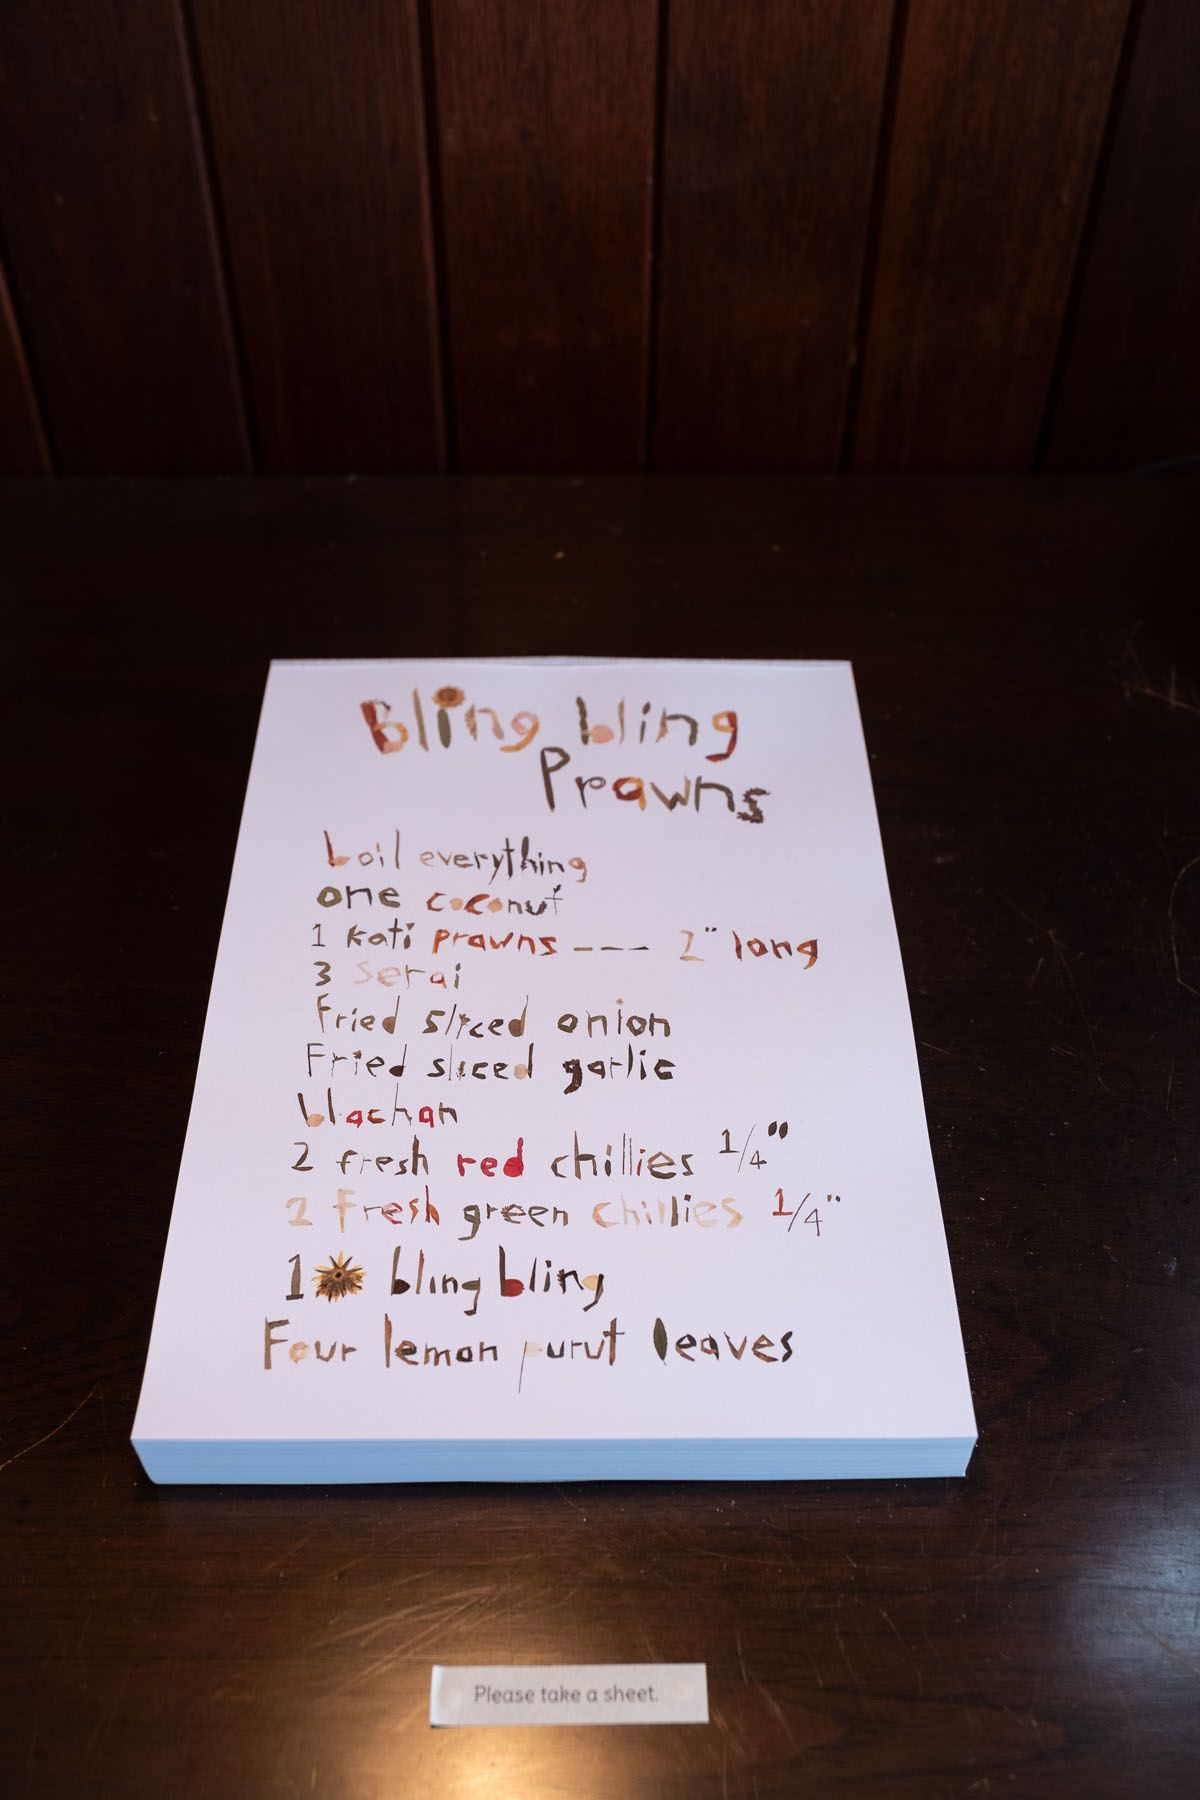 Bling bling
Prawns
boil everything
one coconut
1 kati prawns --- 2" long
3 serai
Fried sliced onion
Fried sliced garlic
blachan
2 fresh red chillies 1/4"
2 fresh green chillies 1/4"
1 bling bling
Four lemon purut leaves
Please take a sheet.